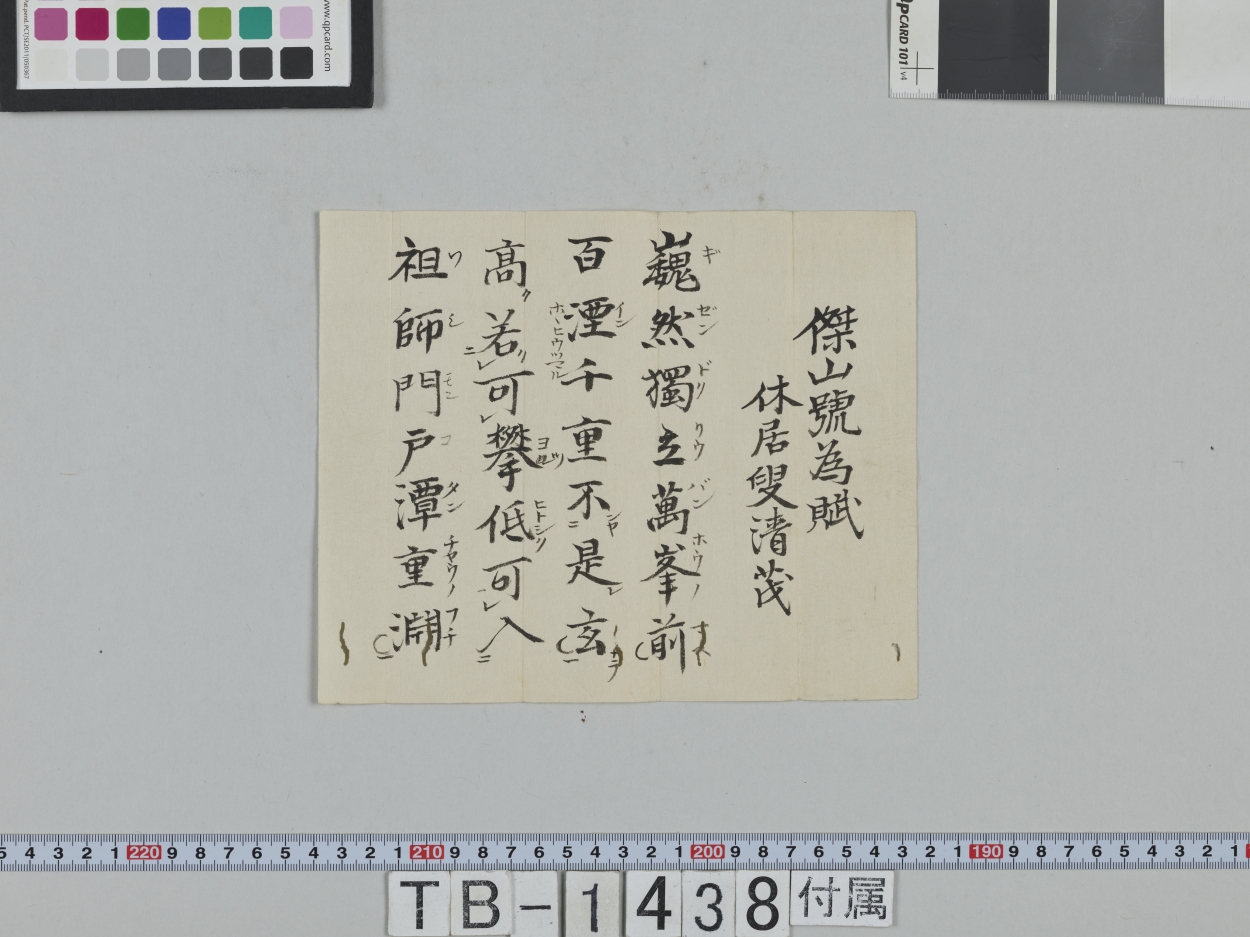 傑山號為賦
休居叟清茂
巍然獨立萬峯前
百湮千重不是玄
高若可攀低可入
祖師門戸潭重淵
www.qpcard.com
QPCARD 101 v4
5 4 3 2 1 220 9 8 7 6 5 4 3 2 1 210 9 8 7 6 5 4 3 2 1 200 9 8 7 6 5 4 3 2 1 190 9 8 7 6 5 4 3 2 1
TB-1438付属